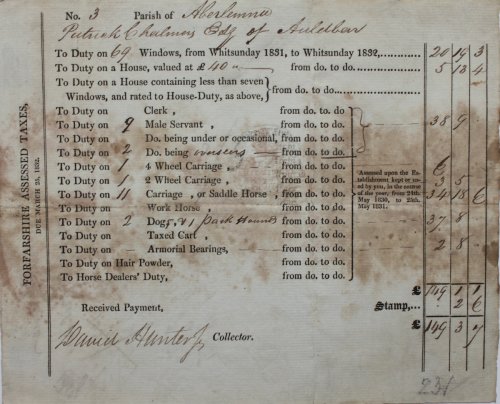 No. 3 Parish of Aberlemno
Patrick Chalmers Esq of Auldbar
To Duty on 69 Windows, from Whitsunday 1831, to Whitsunday 1832, 20 19 3
To Duty on a House, valued at £ 40 from do. to do. 5 13 4
To Duty on a House containing less than seven
Windows, and rated to House-Duty, as above, from do. to do.
To Duty on Clerk, from do. to do.
To Duty on 9 Male Servant, from do. to do. 38 9
To Duty on Do. being under or occasional, from do. to do.
To Duty on 2 Do. being overseers from do. to do.
To Duty on 1 4 Wheel Carriage, from do. to do. 6
To Duty on 1 2 Wheel Carriage, from do. to do. 3 5
To Duty on 11 Carriage, or Saddle Horse, from do. to do. 34 18 6
To Duty on Work Horse, from do. to do.
To Duty on 2 Dog, & 1 pack Hounds from do. to do. 37 8
To Duty on Taxed Cart, from do. to do.
To Duty on — Armorial Bearings, from do. to do. 2 8
To Duty on Hair Powder, from do. to do.
To Horse Dealers' Duty, from do. to do.
Assessed upon the Es-
tablishment kept or us-
ed by you, in the course
of the year, from 24th
May 1830, to 25th
May 1831.
£ 149 1 1
Received Payment, Stamp, 2 6
£ 149 3 7
David Hunter Jr Collector.
231
FORFARSHIRE ASSESSED TAXES,
DUE MARCH 25, 1832.